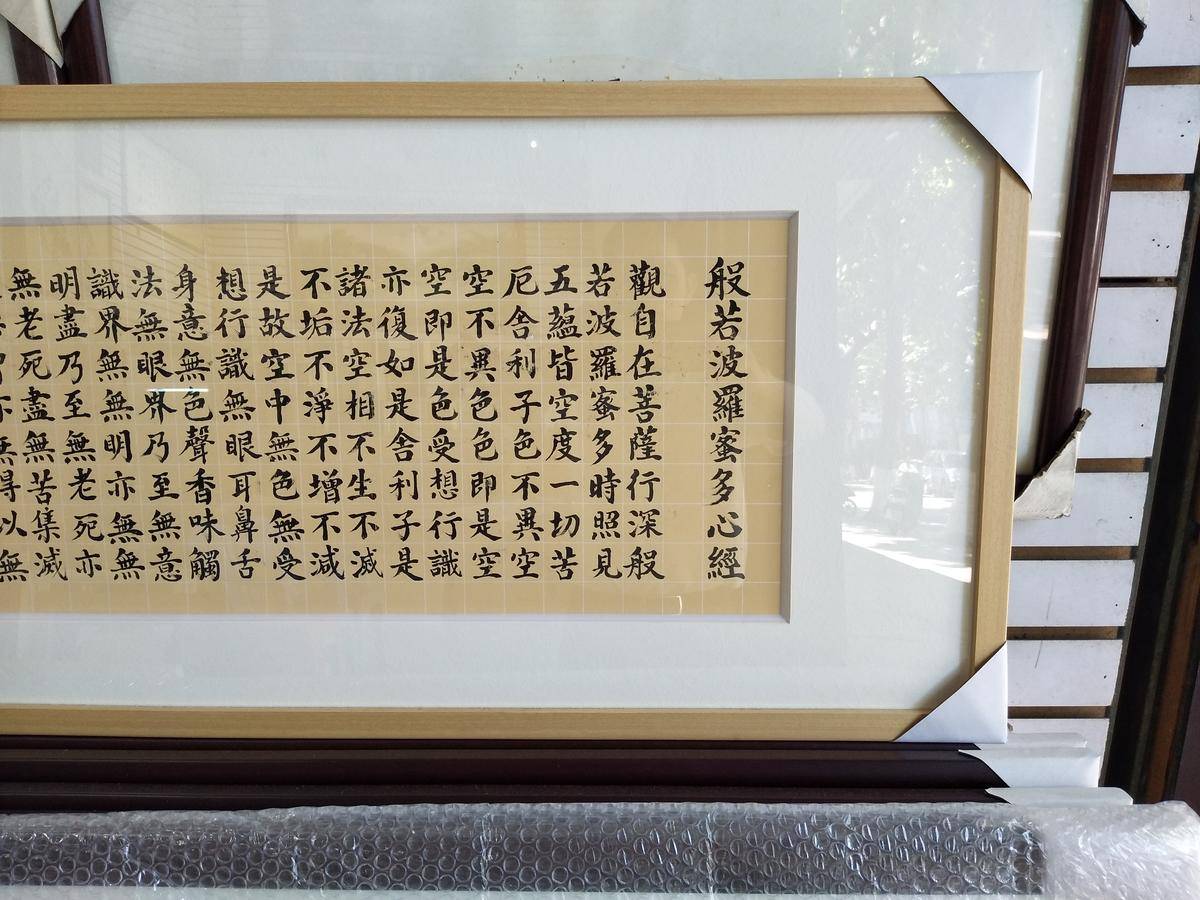 般若波羅蜜多心經
觀自在菩薩行深般
若波羅蜜多時照見
五蘊皆空度一切苦
厄舍利子色不異空
空不異色色即是空
空即是色受想行識
亦復如是舍利子是
諸法空相不生不滅
不垢不淨不增不減
是故空中無色無受
想行識無眼耳鼻舌
身意無色聲香味觸
法無眼界乃至無意
識界無無明亦無無
明盡乃至無老死亦
無老死盡無苦集滅
無得以無